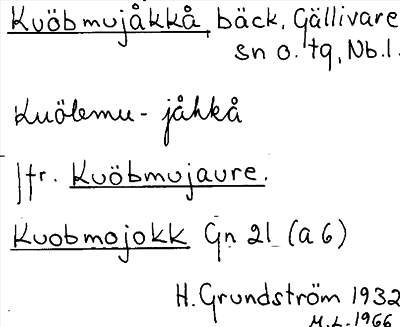 Kuöbmujåkkå, bäck, Gällivare
sn o. tg, Nb.l.
Kuöbmu-jåhkå
Jfr. Kuöbmujaure.
Kuobmojokk Gn 2l (a 6)
H. Grundström 1932
M.L. 1966